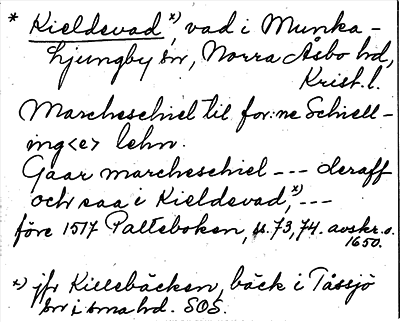 * Kieldevad, x) vad i Munka-
Ljungby sn, Norra Åsbo hd,
Krist. l.
Marcheschiel til for:ne Schiell-
ing<e> lehn.
Gaar marcheschiel --- deraff
och saa i Kieldevad, x) ---
före 1517 Palteboken, s. 73, 74. avskr. o.
1650.
x) jfr Killebäcken, bäck i Tåssjö
sn i sma hd. SOS.